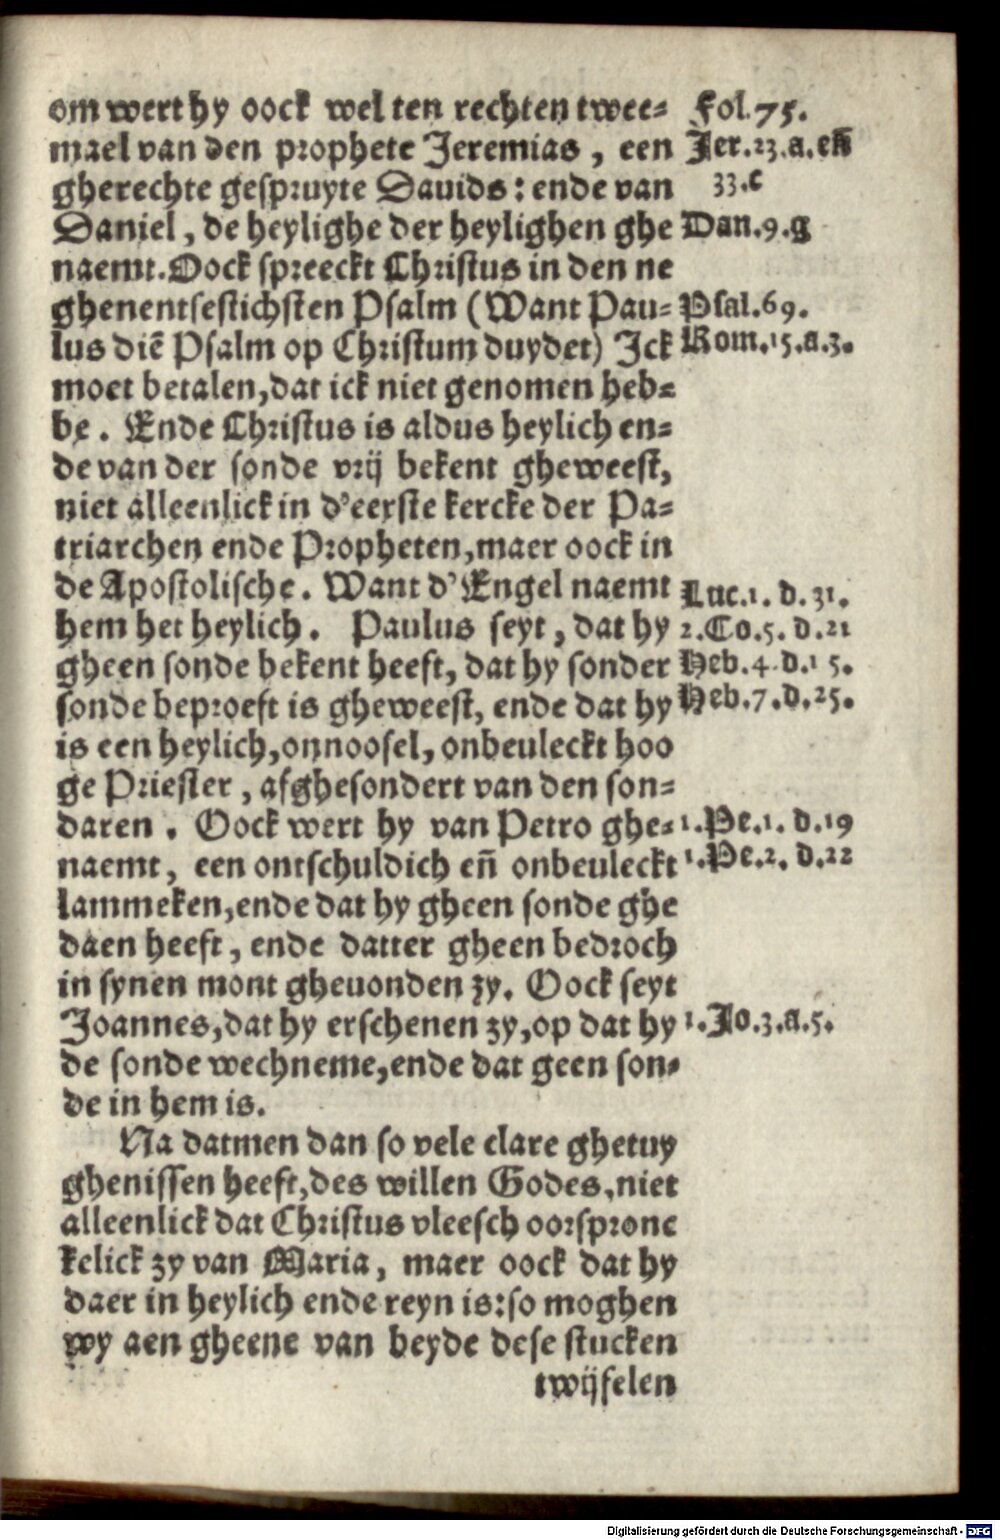 om wert hy oock wel ten rechten twee= Fol.75.
mael van den prophete Jeremias, een Jer.23.a.eñ
gherechte gespruyte Dauids: ende van 33.c
Daniel, de heylighe der heylighen ghe Dan.9.g
naemt. Oock spreeckt Christus in den ne
ghenentsestichsten Psalm (Want Pau= Psal.69.
lus diē Psalm op Christum duydet) Ick Rom.15.a.3.
moet betalen, dat ick niet genomen heb=
be. Ende Christus is aldus heylich en=
de van der sonde vrij bekent gheweest,
niet alleenlick in d'eerste kercke der Pa=
triarchen ende Propheten, maer oock in
de Apostolische. Want d'Engel naemt Luc.1.d.31.
hem het heylich. Paulus seyt, dat hy 2.Co.5.d.21
gheen sonde bekent heeft, dat hy sonder Heb.4.d.15.
sonde beproeft is gheweest, ende dat hy Heb.7.d.25.
is een heylich, onnoosel, onbeuleckt hoo
ge Priester, afghesondert van den son=
daren. Oock wert hy van Petro ghe= 1.Pe.1.d.19
naemt, een ontschuldich eñ onbeuleckt 1.Pe.2.d.22
lammeken, ende dat hy gheen sonde ghe
daen heeft, ende datter gheen bedroch
in synen mont gheuonden zy. Oock seyt
Joannes, dat hy erschenen zy, op dat hy 1.Jo.3.a.5.
de sonde wechneme, ende dat geen son=
de in hem is.
Na datmen dan so vele clare ghetuy
ghenissen heeft, des willen Godes, niet
alleenlick dat Christus vleesch oorspronc
kelick zy van Maria, maer oock dat hy
daer in heylich ende reyn is: so moghen
wy aen gheene van beyde dese stucken
twijfelen
Digitalisierung gefördert durch die Deutsche Forschungsgemeinschaft - DFG